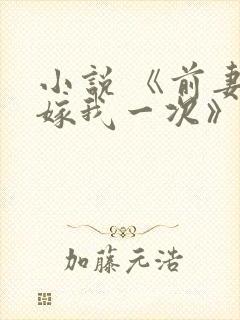 小说《前妻
嫁我一次》
加藤元浩